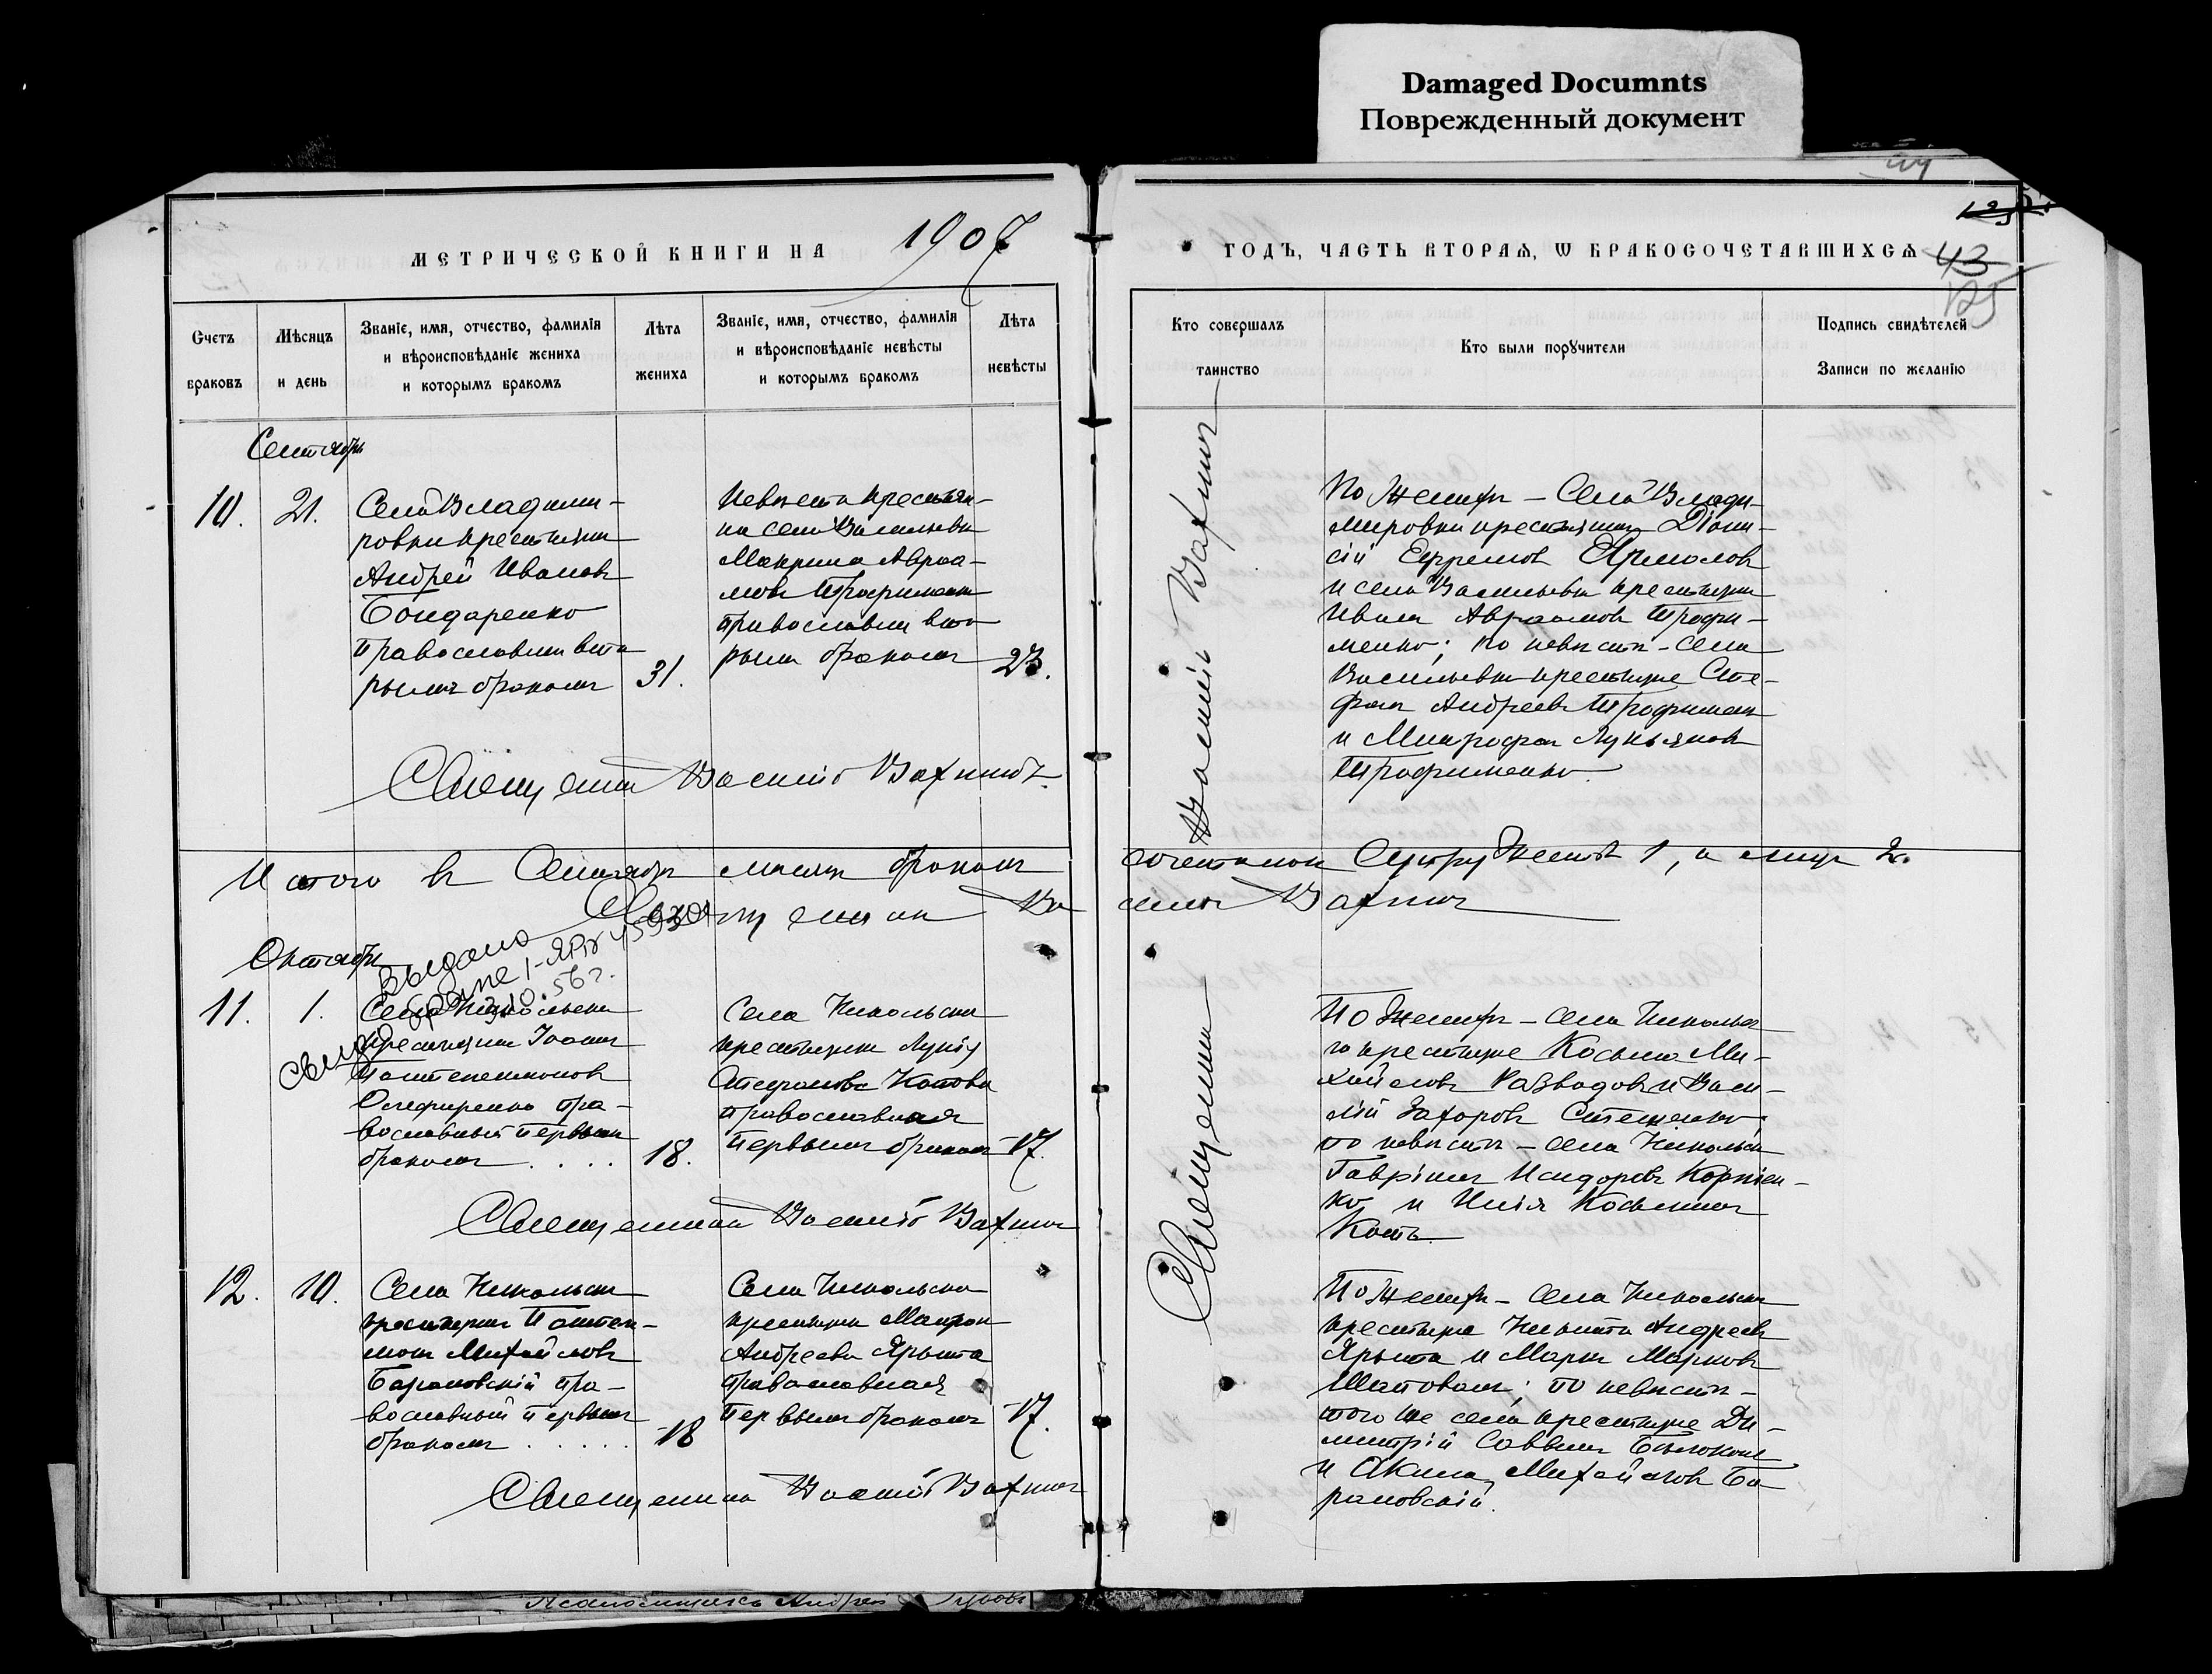 Damaged Documnts
Поврежденный документ
43
125
МЕТРИЧЕСКОЙ КНИГИ НА 1907
ГОДЪ, ЧАСТЬ ВТОРАѦ, Ѡ БРАКОСОЧЕТАВШИХСѦ
Счетъ браковъ
Мѣсяцъ и день
Званіе, имя, отчество, фамилія
и вѣроисповѣданіе жениха
и которымъ бракомъ
Лѣта жениха
Званіе, имя, отчество, фамилія
и вѣроисповѣданіе невѣсты
и которымъ бракомъ
Лѣта невѣсты
Кто совершалъ таинство
Кто были порꙋчители
Подпись свидѣтелей
Записи по желанію
Сентябрь
10.
21.
Села Владими-
ровки крестьянин
Андрей Иванов
Бондаренко
православный вто
рымъ бракомъ
31.
Невеста крестьян-
ка села Васильевки
Макрина Авраа-
мова Трофименко
православная вто
рымъ бракомъ
23.
Священникъ Василій Вахнинъ
По женихе - Села Влади-
мировки крестьянин Діони-
сій Ефремов Ермолов
и села Васильевки крестьянин
Иван Авраамов Трофи-
менко; по невесте - села
Васильевки крестьяне Сте-
фан Андреев Трофименко
и Митрофан Лукьянов
Трофименко.
Итого в Сентябре месяце браком
сочетанных 1, а лиц 2.
Священник Василій Вахнинъ
Октябрь
Выдано
свид. о браке I-ЯР№ 459304
3.10.56 г.
11.
1.
Села Никольска
крестьянин Іоанн
Пантелеимонов
Олефиренко пра-
вославный первым
браком
18.
Села Никольска
крестьянка Лукія
Стефанова Котова
православная
первым браком
17.
Священник Василій Вахнинъ
По женихе - села Никольск
го крестьяне Косьма Ми-
хайлов Разводов и Васи-
лій Захаров Стеценко
по невесте - села Никольска
Гавріил Исидоров Корніен-
ко и Илія Косьмин
Котъ.
12.
10.
Села Никольска
крестьянин Пантел-
имон Михайлов
Барановскій пра-
вославный первым
браком
18
Села Никольска
крестьянка Макрина
Андреева Ярыта
православная
первым браком
17.
Священник Василій Вахнинъ
По женихе - Села Никольска
крестьяне Никита Андреев
Ярыта и Марк Марков
Шаповал; по невесте -
того же села крестьяне Ди-
митрій Саввин Белокон
и Аким Михайлов Ба
рановскій.
Священник
Василій Вахнинъ
Псаломщикъ Андрей